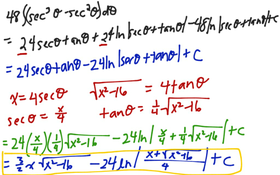 48∫(sec³θ - sec²θ)dθ
= 24secθtanθ + 24ln|secθ+tanθ| - 48ln|secθ+tanθ|+C
= 24secθtanθ - 24ln|secθ+tanθ| + C
x = 4secθ √x²-16 = 4tanθ
secθ = x/4 tanθ = 1/4 √x²-16
= 24(x/4)(1/4)√x²-16 - 24ln|x/4 + 1/4 √x²-16| + C
= 3/2 x √x²-16 - 24ln|(x+√x²-16)/4| + C